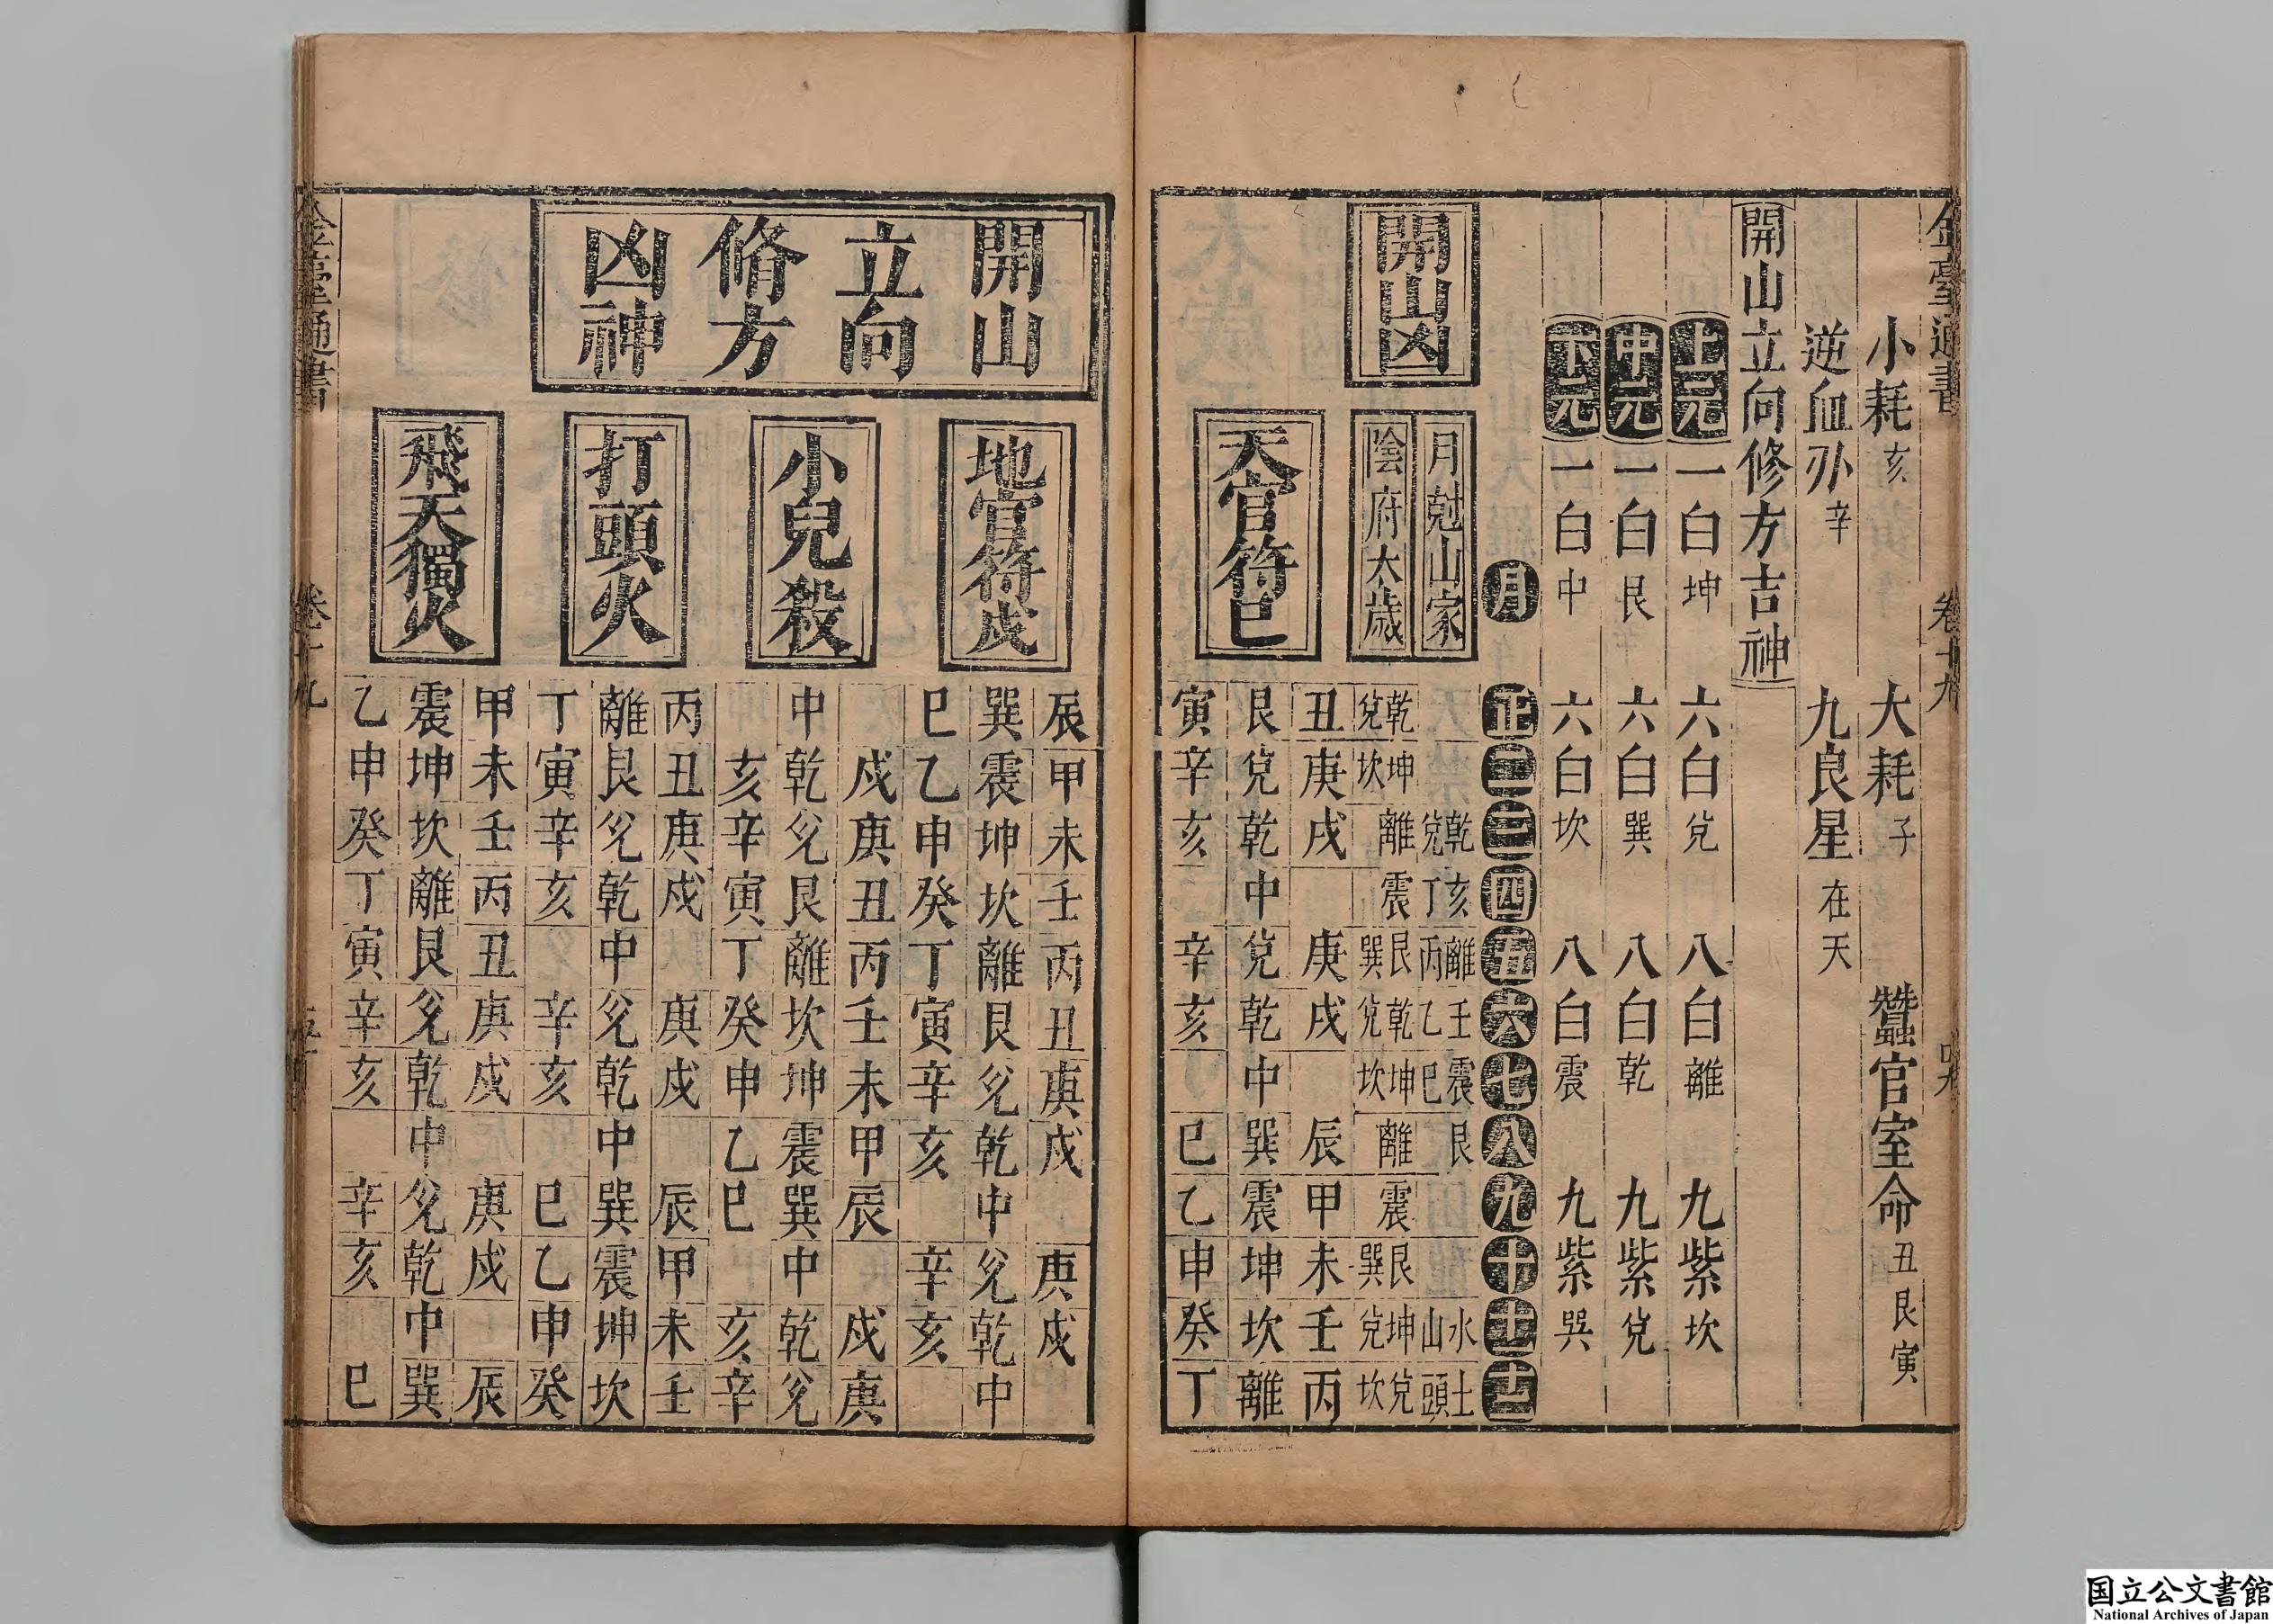 小耗亥 大耗子 蠶官室命丑艮寅
逆血刅辛 九良星在天
開山立向修方吉神
上元 一白坤 六白兌 八白離 九紫坎
中元 一白艮 六白巽 八白乾 九紫兌
下元 一白中 六白坎 八白震 九紫巽
月 正 二 三 四 五 六 七 八 九 十 十一 十二
開山凶
月尅山家 乾兌 亥丁 離丙 壬乙 震巳 艮 水山 土頭
陰府太歲 乾兌 坤坎 離 震 艮巽 乾兌 坤坎 離 震 艮巽 坤兌 兌坎
天官符巳
丑庚戌 庚戌 辰甲未壬丙
艮兌乾中兌乾中巽震坤坎離
寅辛亥 辛亥 巳乙申癸丁
開山立向脩方凶神
地官符戌
辰甲未壬丙丑庚戌 庚戌
巽震坤坎離艮兌乾中兌乾中
巳乙申癸丁寅辛亥 辛亥
小兒殺
戌庚丑丙壬未甲辰 戌庚
中乾兌艮離坎坤震巽中乾兌
亥辛寅丁癸申乙巳 亥辛
打頭火
丙丑庚戌 庚戌 辰甲未壬
離艮兌乾中兌乾中巽震坤坎
丁寅辛亥 辛亥 巳乙申癸
飛天獨火
甲未壬丙丑庚戌 庚戌 辰
震坤坎離艮兌乾中兌乾中巽
乙申癸丁寅辛亥 辛亥 巳
国立公文書館
National Archives of Japan